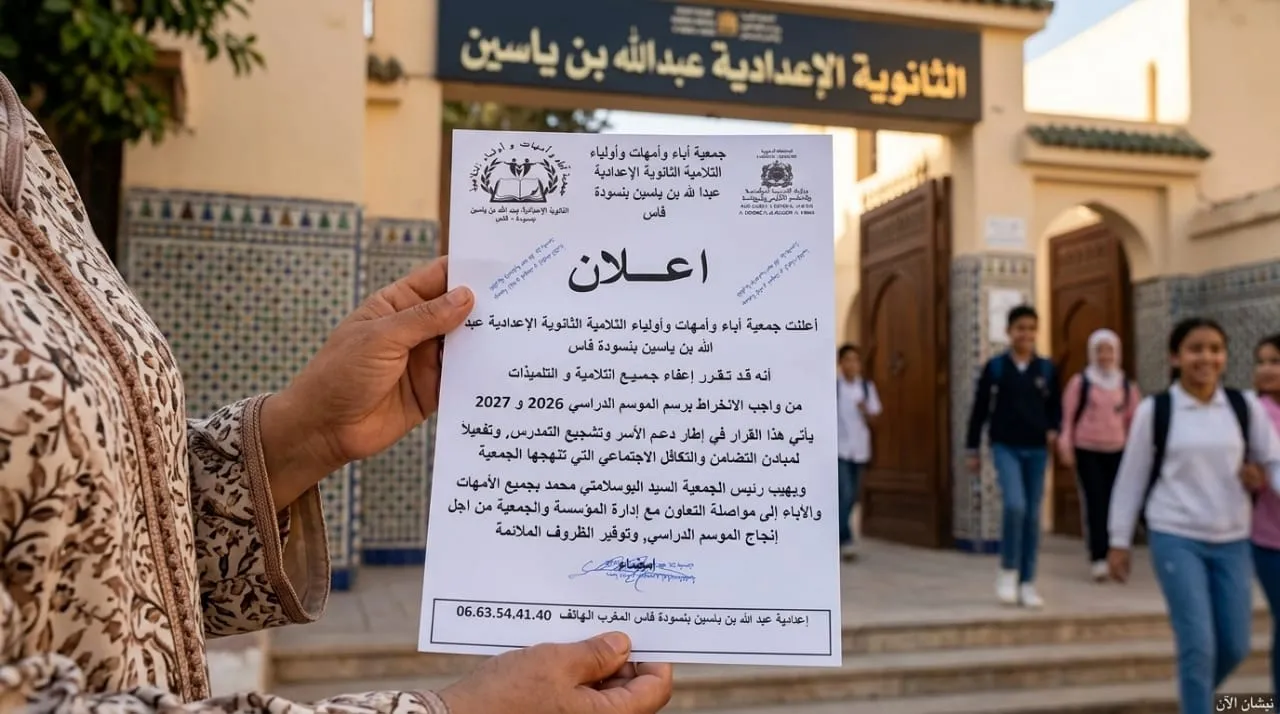 الثانوية الإعدادية عبدالله بن ياسين
جمعية أباء وأمهات وأولياء
التلامية الثانوية الإعدادية
عبدا لله بن ياسين بنسودة
فاس
الثانوية الإعدادية عبد الله بن ياسين
بنسودة - فاس
اعـــلان
أعلنت جمعية أباء وأمهات وأولياء التلامية الثانوية الإعدادية عبد
الله بن ياسين بنسودة فاس
أنه قد تقرر إعفاء جميع التلامية و التلميذات
من واجب الانخراط برسم الموسم الدراسي 2026 و 2027
يأتي هذا القرار في إطار دعم الأسر وتشجيع التمدرس, وتفعيلاً
لمبادن التضامن والتكافل الاجتماعي التي تنتهجها الجمعية
ويهيب رئيس الجمعية السيد البوسلامتي محمد بجميع الأمهات
والأباء إلى مواصلة التعاون مع إدارة المؤسسة والجمعية من اجل
إنجاح الموسم الدراسي, وتوفير الظروف الملائمة
إعدادية عبد الله بن ياسين بنسودة فاس المغرب الهاتف 06.63.54.41.40
نيشان الآن